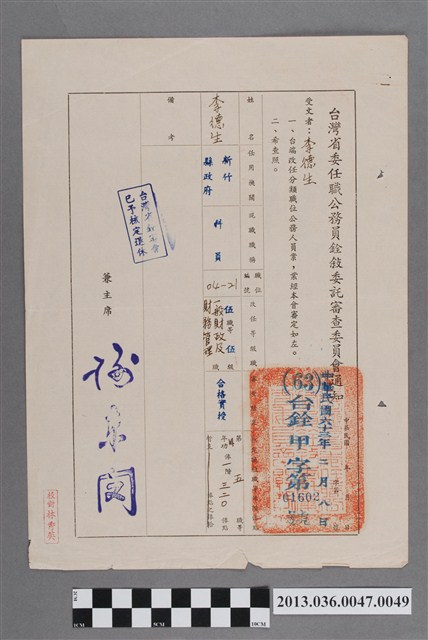 台灣省委任職公務員銓敍委託審查委員會通知
受文者：李德生
一、台端改任分類職位公務人員案，業經本會審定如左。
二、希查照。
中華民國六十三年二月八日
(63)台銓甲字第
01602
姓名
李德生
任用機關
新竹
縣政府
送職職稱
科員
職位
編號
04-21
伍職等
一般財政及
財務管理
伍級
職
合格實授
第五職等
年功俸一階
三二〇俸點
暫支
俸點之俸給
備考
台灣省
已予核定退休
兼主席
校對林秀英
1CM
5CM
10CM
2013.036.0047.0049